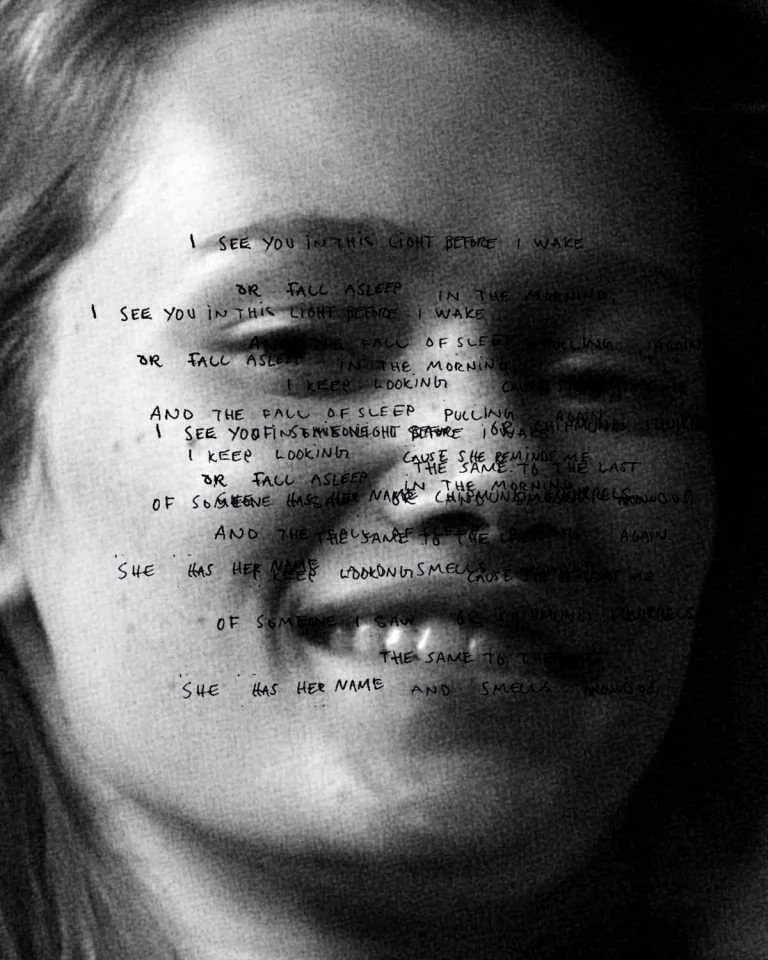 I SEE YOU IN THIS LIGHT BEFORE I WAKE
OR FALL ASLEEP IN THE MORNING,
I SEE YOU IN THIS LIGHT BEFORE I WAKE
AND THE FALL OF SLEEP PULLING AGAIN
OR FALL ASLEEP IN THE MORNING
I KEEP LOOKING CAUSE
AND THE FALL OF SLEEP PULLING AGAIN
OR CHIPMUNKS SQUIRRELS
I SEE YOU IN THIS LIGHT BEFORE I WAKE
I KEEP LOOKING CAUSE SHE REMINDS ME
THE SAME TO THE LAST
OR FALL ASLEEP IN THE MORNING
OF SOMEONE I SAW OR CHIPMUNKS SQUIRRELS
SHE HAS HER NAME AROUND US
AND THE FALL OF AGAIN
THE SAME TO THE
SHE HAS HER NAME AND SMELLS
I KEEP LOOKING CAUSE SHE REMINDS ME
OF SOMEONE I SAW OR CHIPMUNKS SQUIRRELS
THE SAME TO THE
SHE HAS HER NAME AND SMELLS AROUND US